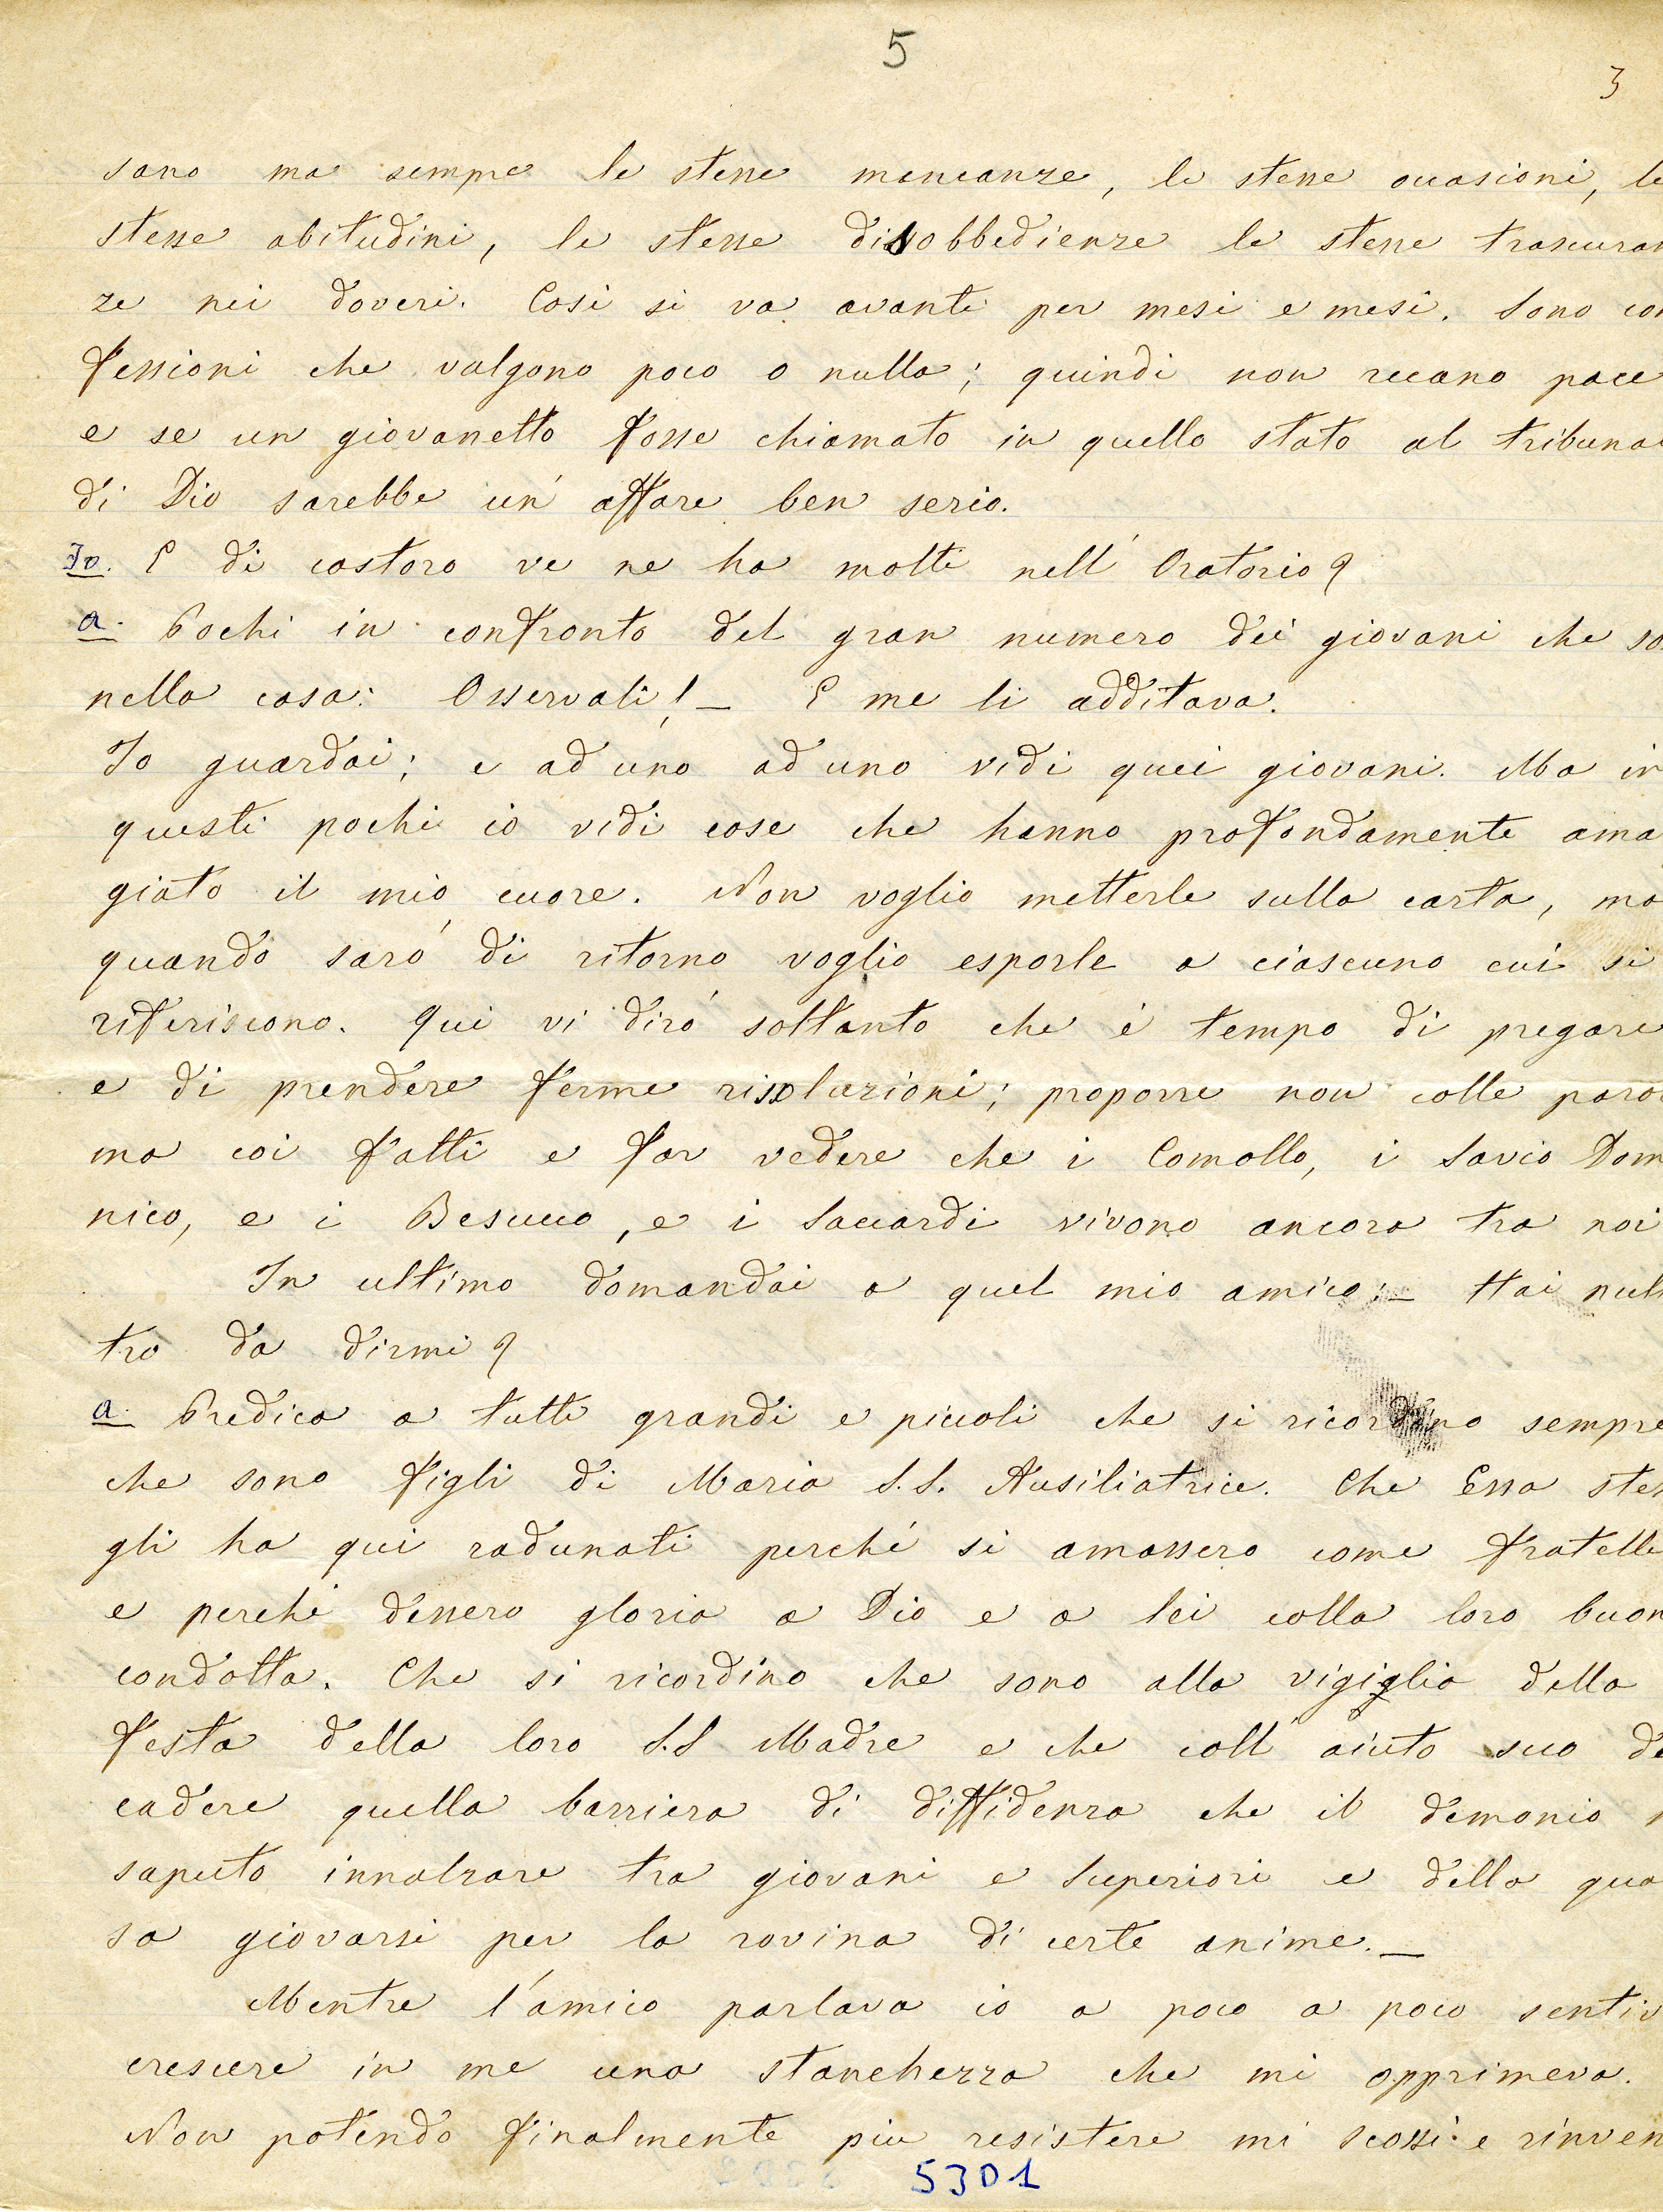 5
3
sano ma sempre le stesse mancanze, le stesse occasioni, le
stesse abitudini, le stesse dissobbedienze le stesse trascuran
ze nei doveri. Così si va avanti per mesi e mesi. Sono con
fessioni che valgono poco o nulla; quindi non recano pace
e se un giovanetto fosse chiamato in quello stato al tribunal
di Dio sarebbe un' affare ben serio.
Io. E di costoro ve ne ha molti nell' Oratorio?
a. Pochi in confronto del gran numero dei giovani che so
nella casa: Osservali! — E me li additava.
Io guardai; e ad uno ad uno vidi quei giovani. Ma in
questi pochi io vidi cose che hanno profondamente ama
giato il mio cuore. Non voglio metterle sulla carta, ma
quando saró di ritorno voglio esporle a ciascuno cui si
riferiscono. Qui vi diró soltanto che é tempo di pregare
e di prendere ferme risoluzioni; proporre non colle paro
ma coi fatti e far vedere che i Comollo, i Savio Dom
nico, e i Besucco, e i Saccardi vivono ancora tra noi
In ultimo domandai a quel mio amico: — Hai null
tro da dirmi?
a. Predica a tutti grandi e piccoli che si ricordino sempre
che sono figli di Maria S.S. Ausiliatrice. Che Essa stes
gli ha qui radunati perché si amassero come fratelli
e perché dessero gloria a Dio e a lei colla loro buon
condotta. Che si ricordino che sono alla vigiglia della
festa della loro S.S Madre e che coll' aiuto suo de
cadere quella barriera di diffidenza che il demonio
saputo innalzare tra giovani e Superiori e della qua
sa giovarsi per la rovina di certe anime. —
Mentre l'amico parlava io a poco a poco sentiv
crescere in me una stanchezza che mi opprimeva.
Non potendo finalmente piu resistere mi scossi e rinven
5301